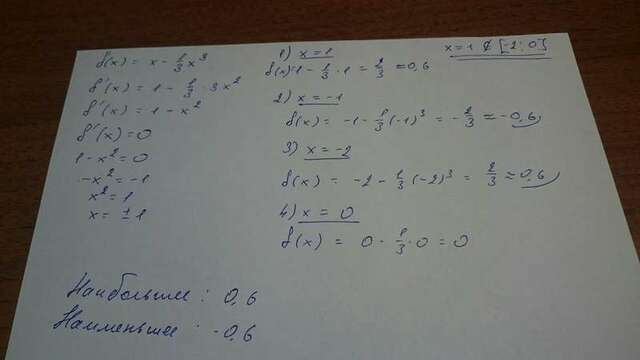 f(x) = x - 1/3 x³
f'(x) = 1 - 1/3 · 3x²
f'(x) = 1 - x²
f'(x) = 0
1 - x² = 0
-x² = -1
x² = 1
x = ±1
1) x = 1
x = 1 ∉ [-2; 0]
f(x) = 1 - 1/3 · 1 = 2/3 ≈ 0,6
2) x = -1
f(x) = -1 - 1/3 (-1)³ = -2/3 ≈ -0,6
3) x = -2
f(x) = -2 - 1/3 (-2)³ = 2/3 ≈ 0,6
4) x = 0
f(x) = 0 - 1/3 · 0 = 0
Наибольшее : 0,6
Наименьшее : -0,6